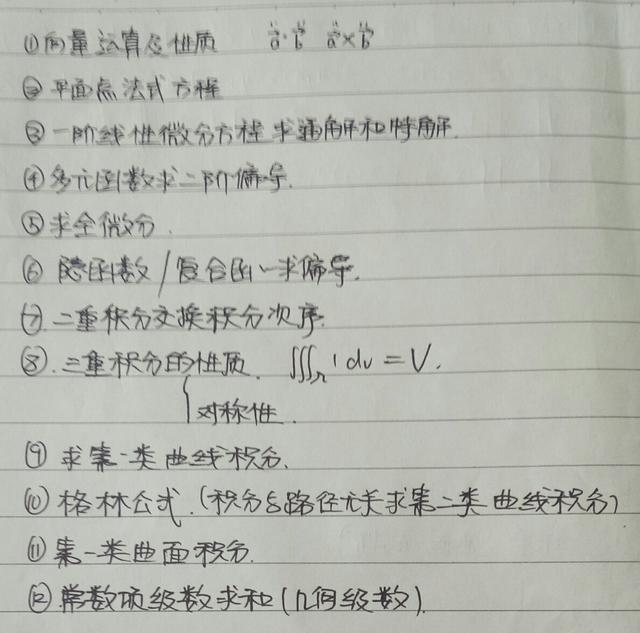 ①向量运算及性质 a⃗·b⃗ a⃗×b⃗
②平面点法式方程
③一阶线性微分方程求通解和特解.
④多元函数求二阶偏导.
⑤求全微分.
⑥隐函数/复合函一求偏导.
⑦.二重积分交换积分次序.
⑧.三重积分的性质. ∭Ω 1 dv = V.
对称性.
⑨求第一类曲线积分.
⑩格林公式.(积分与路径无关求第二类曲线积分)
⑪第一类曲面积分.
⑫常数项级数求和(几何级数).